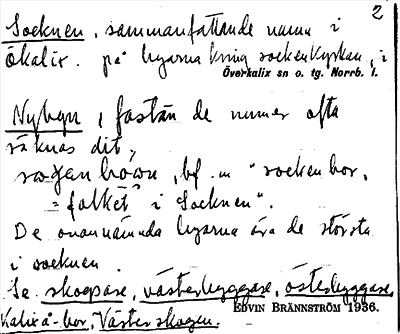 2
Socknen, sammanfattande namn i
Ökalix. på byarna kring sockenkyrkan, i
Överkalix sn o. tg. Norrb. l.
Nybyn, fastän de numer ofta
räknas dit,
bf. m "sockenbor,
= folket i Socknen".
De ovannämnda byarna äro de största
i socknen.
Se skogase, västerbyggare, österbyggare,
EDVIN BRÄNNSTRÖM 1936.
Kalixå-bor, Västerskogen.